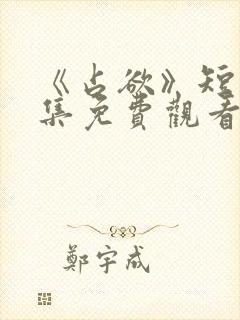 《占欲》短
集免費觀看
鄭宇成